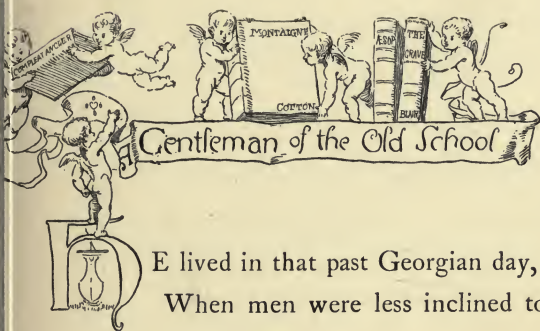 COMPLEAT ANGLER
MONTAIGNE
COTTON
ÆSOP
THE GRAVE
BLAIR
A Gentleman of the Old School
HE lived in that past Georgian day,
When men were less inclined to